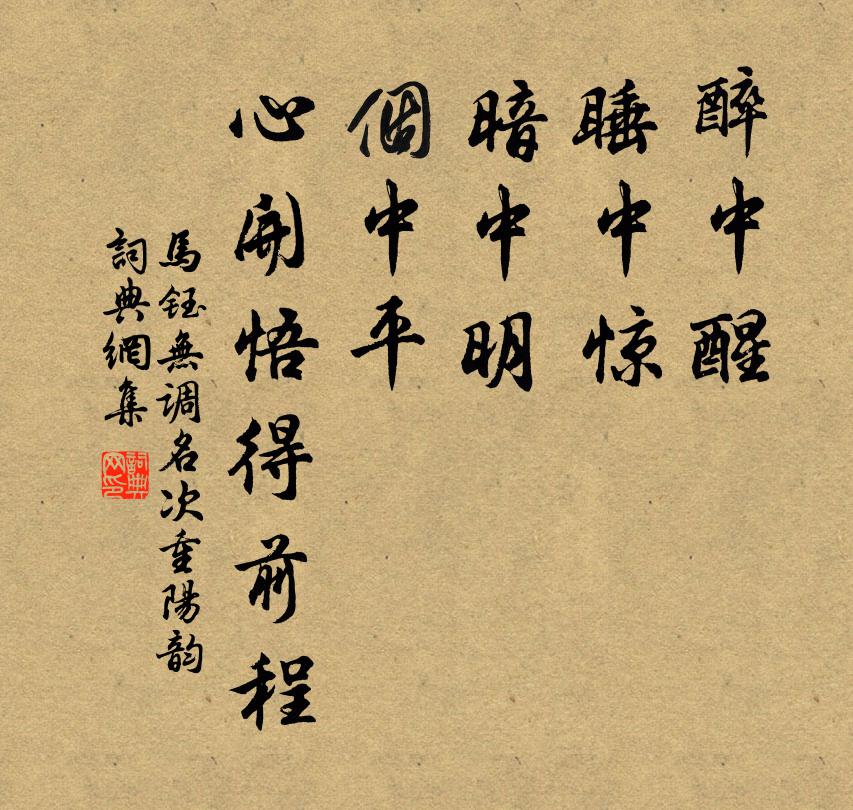 醉中醒
睡中惊
暗中明
個中平
心開悟得前程
馬鈺無调名次重陽韵
詞典網集
詞典网印